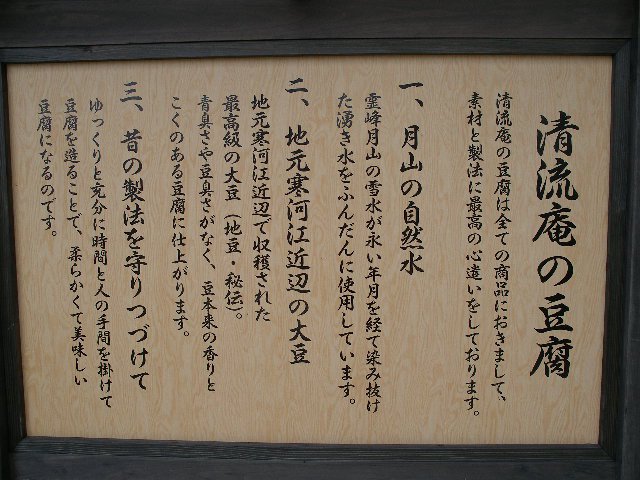 清流庵の豆腐
清流庵の豆腐は全ての商品におきまして、
素材と製法に最高の心遣いをしております。
一、月山の自然水
霊峰月山の雪水が永い年月を経て染み抜け
た湧き水をふんだんに使用しています。
二、地元寒河江近辺の大豆
地元寒河江近辺で収穫された
最高級の大豆（地豆・秘伝）。
青臭さや豆臭さがなく、豆本来の香りと
こくのある豆腐に仕上がります。
三、昔の製法を守りつづけて
ゆっくりと充分に時間と人の手間を掛けて
豆腐を造ることで、柔らかくて美味しい
豆腐になるのです。